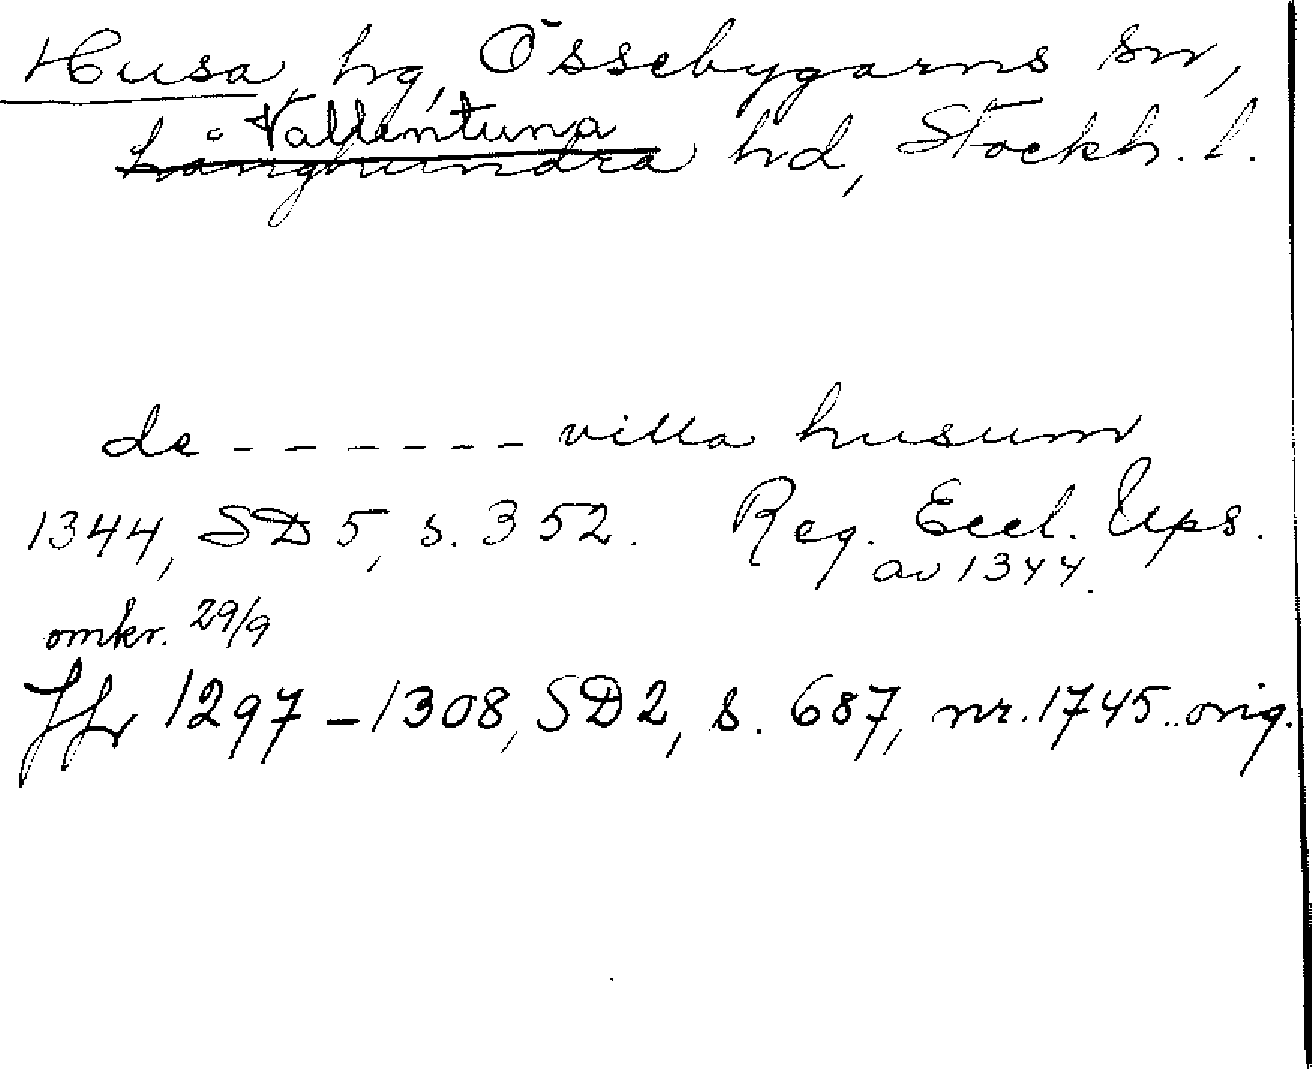 Husa, hg, Össebygarns sn,
Vallentuna
Långhundra hd, Stockh. l.
de ------ villa husum
1344, SD 5, s. 352. Reg. Eccl. Ups.
av 1344.
omkr. 29/9
Jfr 1297-1308, SD 2, s. 687, nr. 1745. orig.